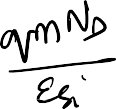 q m N_D
E_{Si}